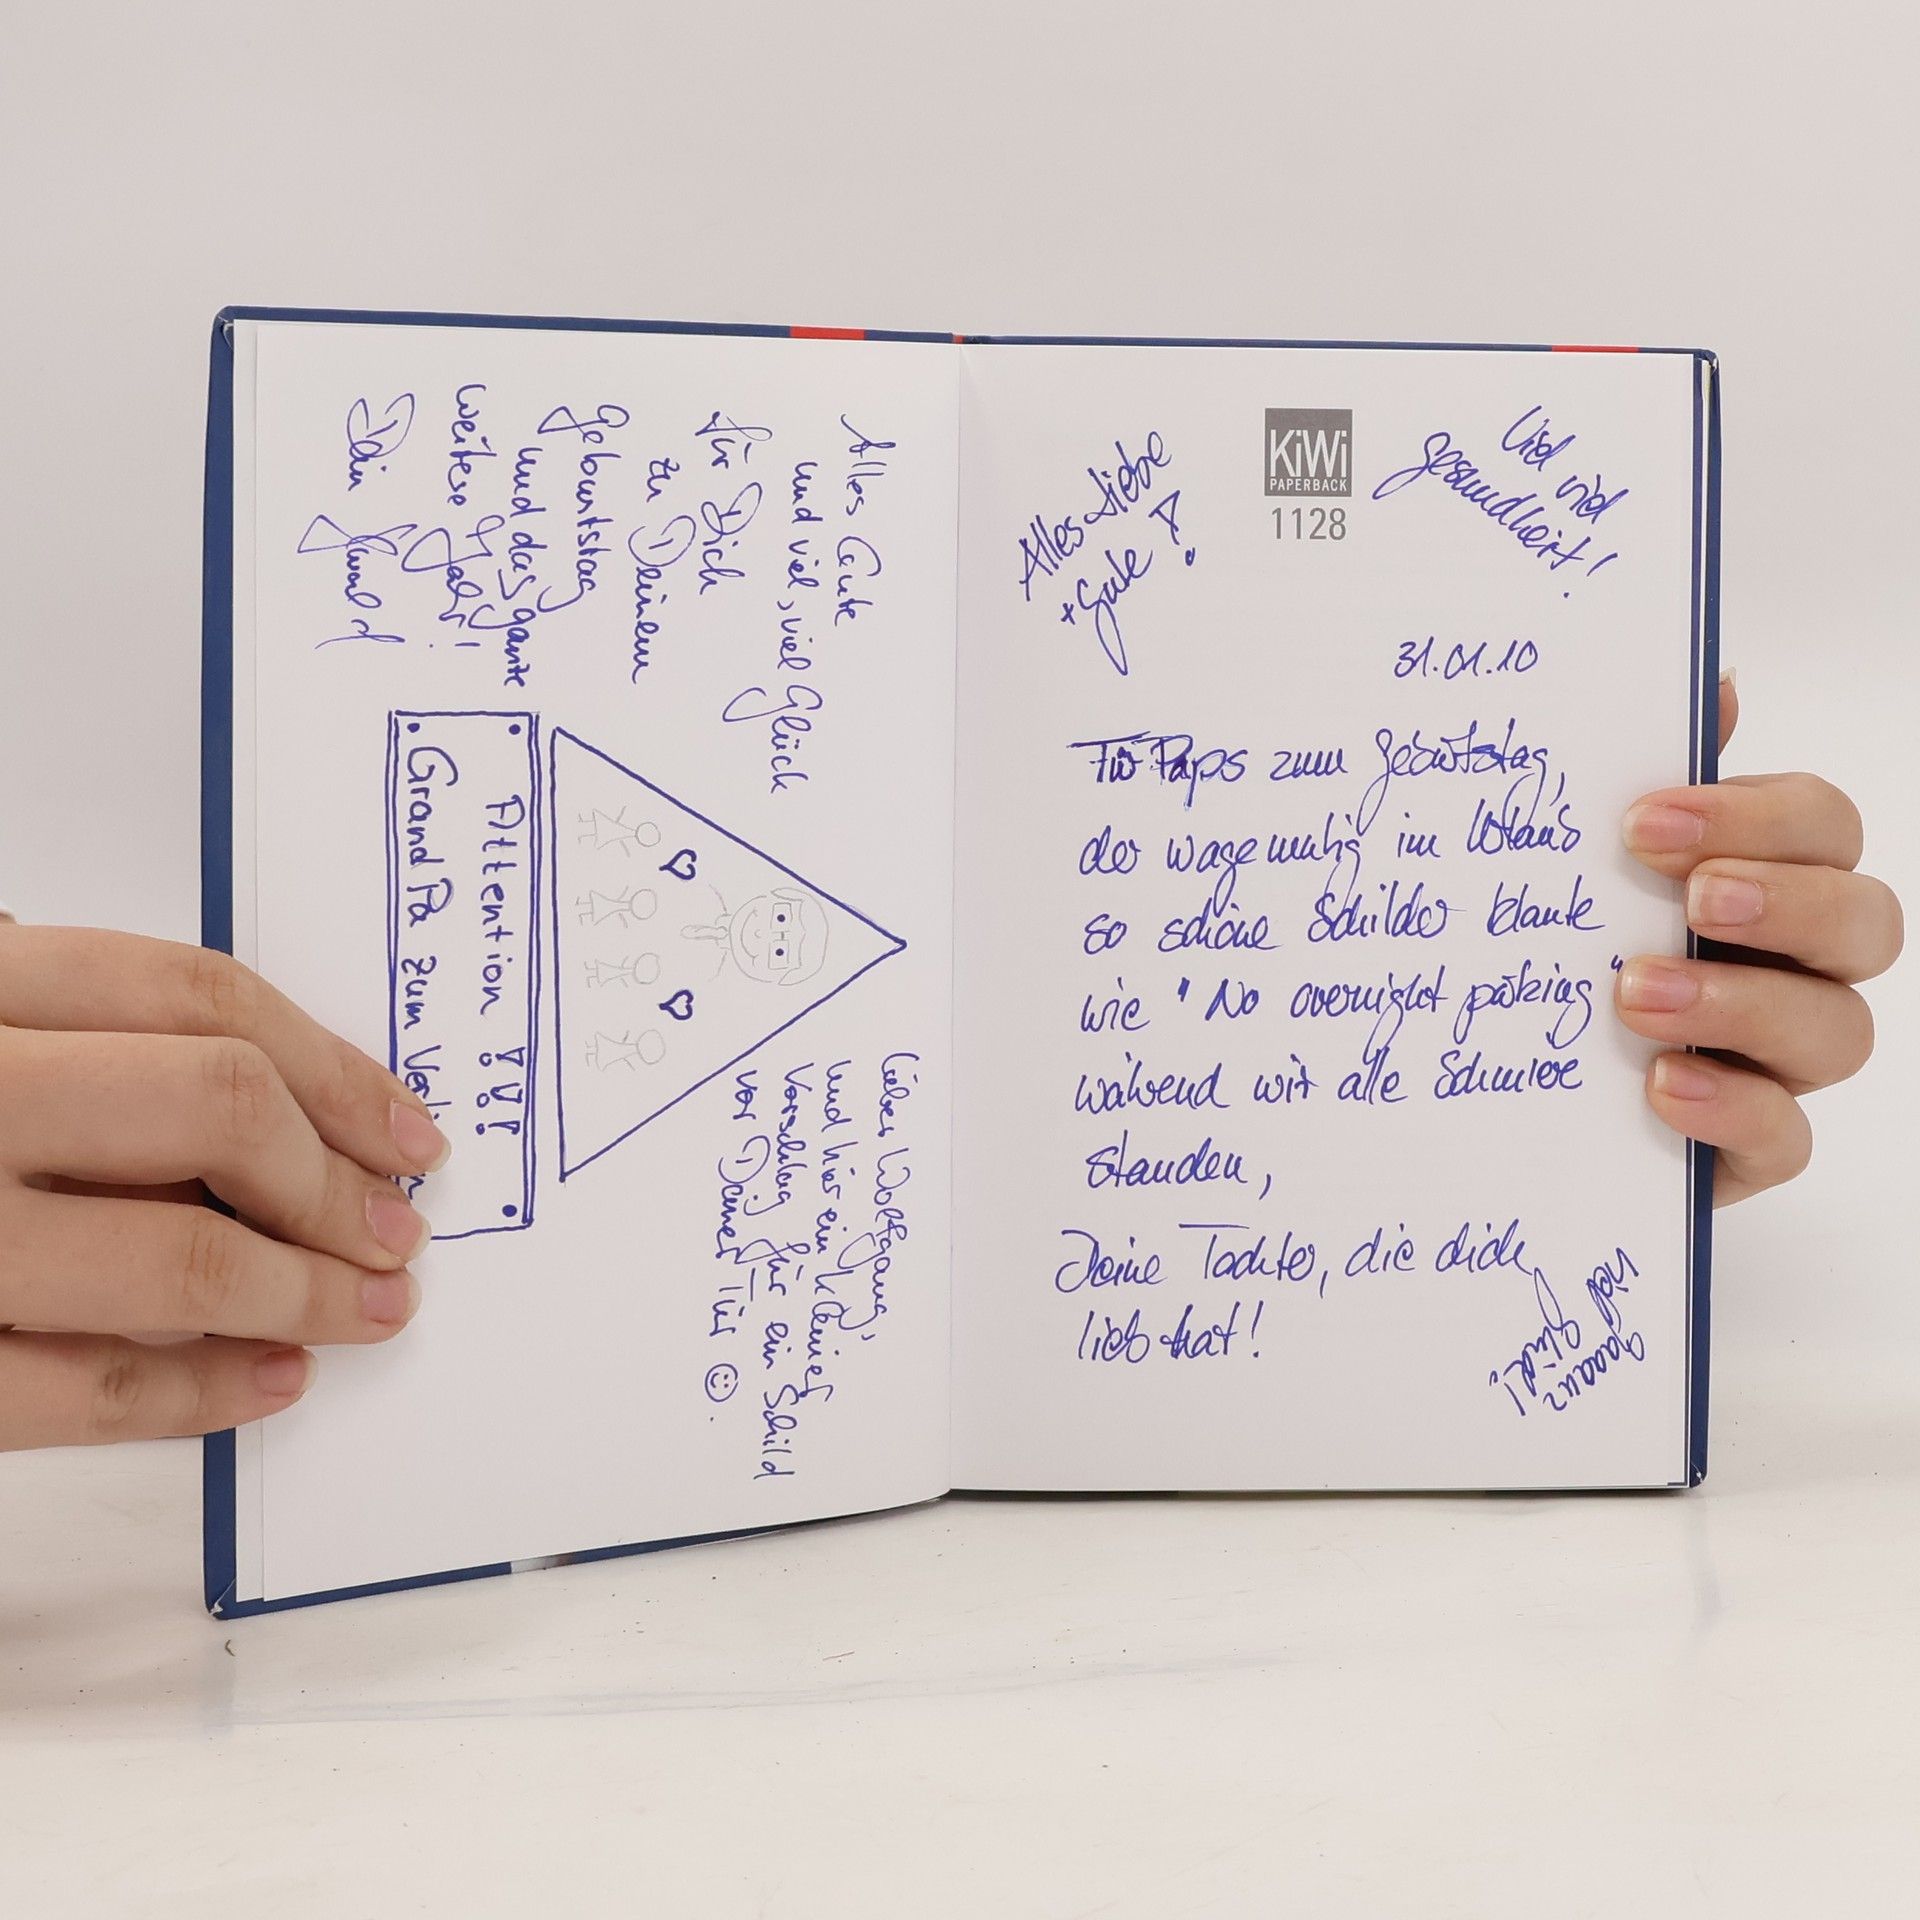 Alles Gute
und viel, viel Glück
für Dich
zu Deinem
Geburtstag
und das ganze
weitere Jahr!
Dein
Lieber Wolfgang,
und hier ein kleiner
Vorschlag für ein Schild
vor Deiner Tür ☺.
Attention !!!
GrandPa zum
KiWi
PAPERBACK
1128
Alles Liebe
+ Gute!
Viel viel
Gesundheit!
31.01.10
Für Paps zum Geburtstag,
der wagemutig im Urlaub
so schöne Schilder klaute
wie "No overnight parking"
während wir alle Schmiere
standen,
Deine Tochter, die dich
lieb hat!
Und gaaanz
Glück!